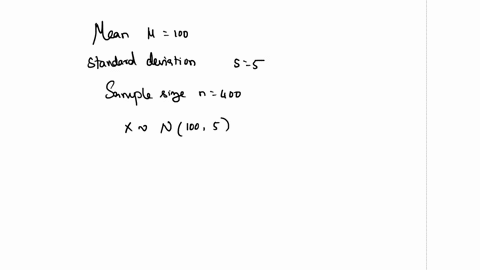 Mean μ = 100
Standard deviation s = 5
Sample size n = 400
X ~ N(100, 5)